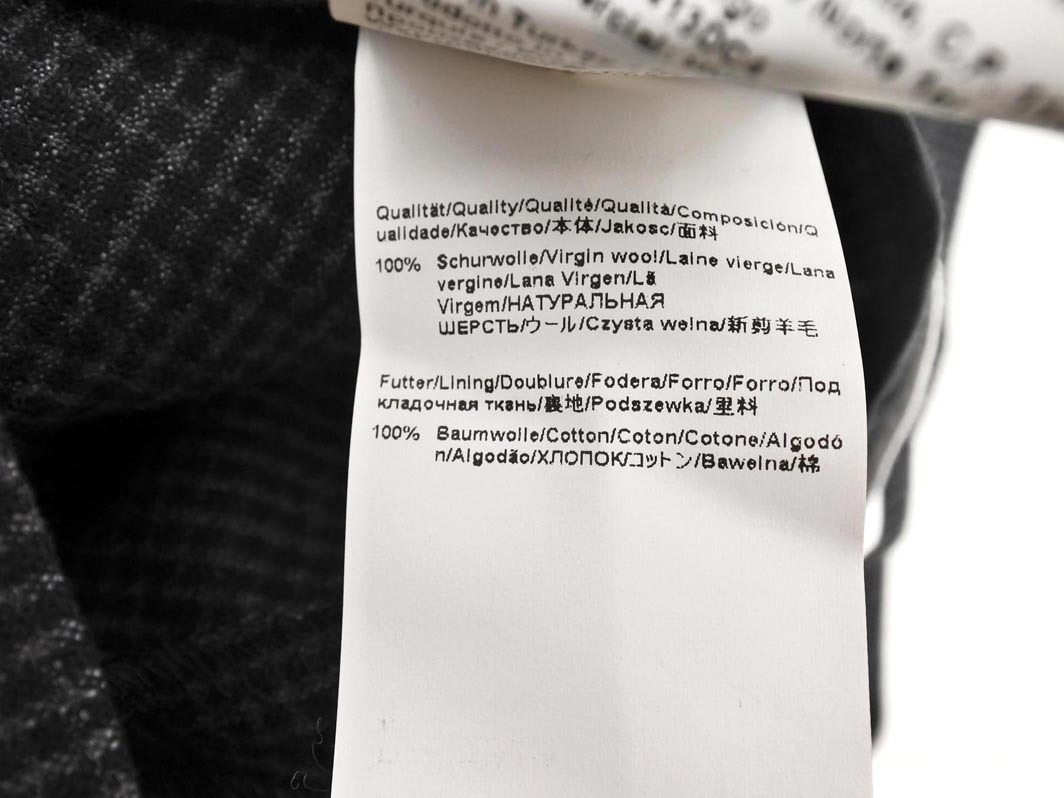 C.P.
Qualität/Quality/Qualité/Qualità/Composición/Q
ualidade/Качество/本体/Jakosc/面料
100% Schurwolle/Virgin wool/Laine vierge/Lana
vergine/Lana Virgen/Lã
Virgem/НАТУРАЛЬНАЯ
ШЕРСТЬ/ウール/Czysta welna/新剪羊毛
Futter/Lining/Doublure/Fodera/Forro/Forro/Под
кладочная ткань/裏地/Podszewka/里料
100% Baumwolle/Cotton/Coton/Cotone/Algodó
n/Algodão/ХЛОПОК/コットン/Bawelna/棉